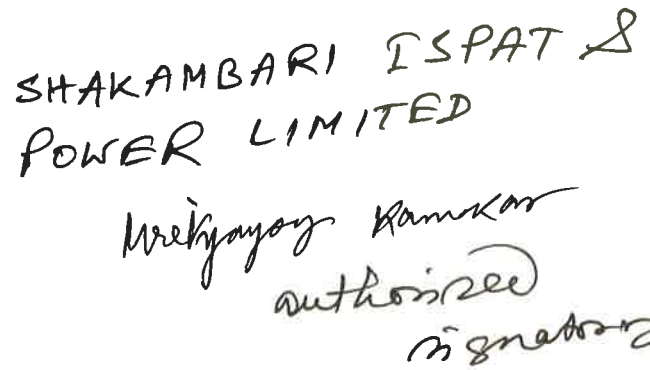 SHAKAMBARI ISPAT &
POWER LIMITED
Mrityunjoy Karmakar
authorised
signatory